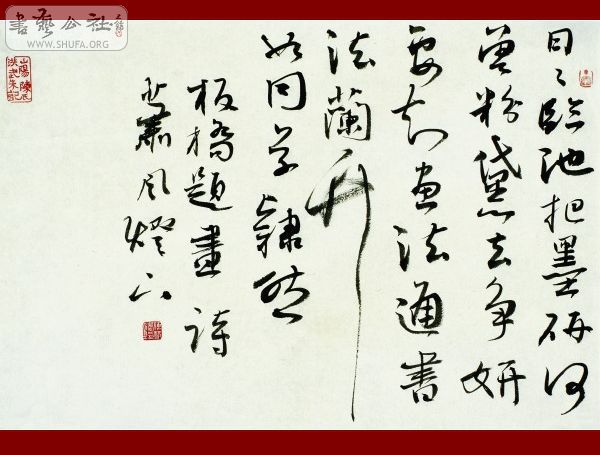 書藝公社
WWW.SHUFA.ORG
日〻臨池把墨研何
曾粉黛去争妍
要知畫法通書
法蘭竹
如同草隸然
板橋題畫詩
蕭風燈下